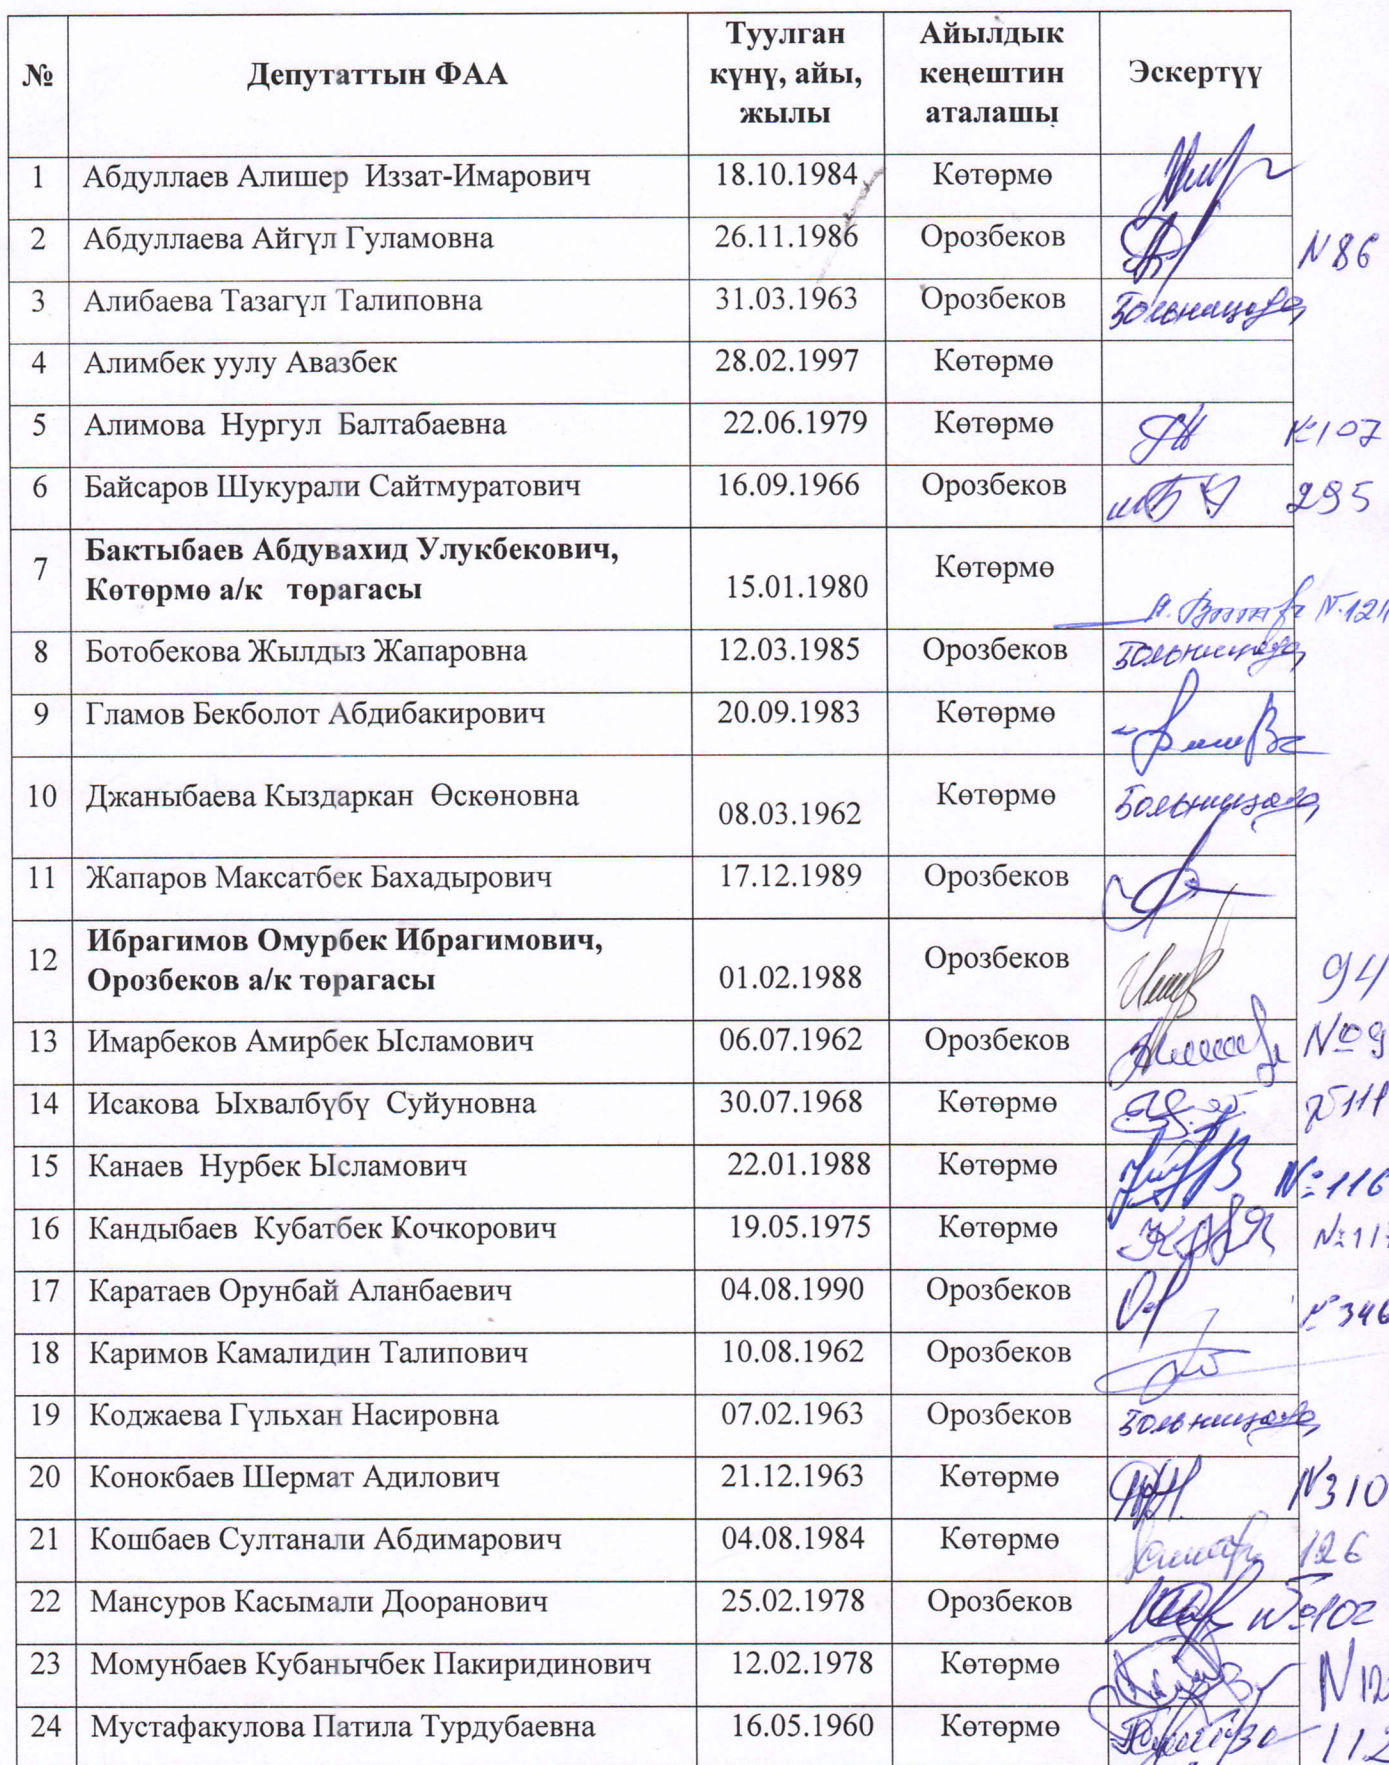 № Депутаттын ФАА Туулган күнү, айы, жылы Айылдык кеңештин аталашы Эскертүү
1 Абдуллаев Алишер Иззат-Имарович 18.10.1984 Көтөрмө
2 Абдуллаева Айгүл Гуламовна 26.11.1986 Орозбеков N 86
3 Алибаева Тазагүл Талиповна 31.03.1963 Орозбеков Больницада
4 Алимбек уулу Авазбек 28.02.1997 Көтөрмө
5 Алимова Нургул Балтабаевна 22.06.1979 Көтөрмө №107
6 Байсаров Шукурали Сайтмуратович 16.09.1966 Орозбеков 295
7 Бактыбаев Абдувахид Улукбекович,
Көтөрмө а/к төрагасы 15.01.1980 Көтөрмө
8 Ботобекова Жылдыз Жапаровна 12.03.1985 Орозбеков Больницада
9 Гламов Бекболот Абдибакирович 20.09.1983 Көтөрмө
10 Джаныбаева Кыздаркан Өскөновна 08.03.1962 Көтөрмө Больницада
11 Жапаров Максатбек Бахадырович 17.12.1989 Орозбеков
12 Ибрагимов Омурбек Ибрагимович,
Орозбеков а/к төрагасы 01.02.1988 Орозбеков 94
13 Имарбеков Амирбек Ысламович 06.07.1962 Орозбеков
14 Исакова Ыхвалбүбү Суйуновна 30.07.1968 Көтөрмө
15 Канаев Нурбек Ысламович 22.01.1988 Көтөрмө №116
16 Кандыбаев Кубатбек Кочкорович 19.05.1975 Көтөрмө
17 Каратаев Орунбай Аланбаевич 04.08.1990 Орозбеков № 346
18 Каримов Камалидин Талипович 10.08.1962 Орозбеков
19 Коджаева Гүльхан Насировна 07.02.1963 Орозбеков Больницада
20 Конокбаев Шермат Адилович 21.12.1963 Көтөрмө N310
21 Кошбаев Султанали Абдимарович 04.08.1984 Көтөрмө 126
22 Мансуров Касымали Дооранович 25.02.1978 Орозбеков №102
23 Момунбаев Кубанычбек Пакиридинович 12.02.1978 Көтөрмө
24 Мустафакулова Патила Турдубаевна 16.05.1960 Көтөрмө 112